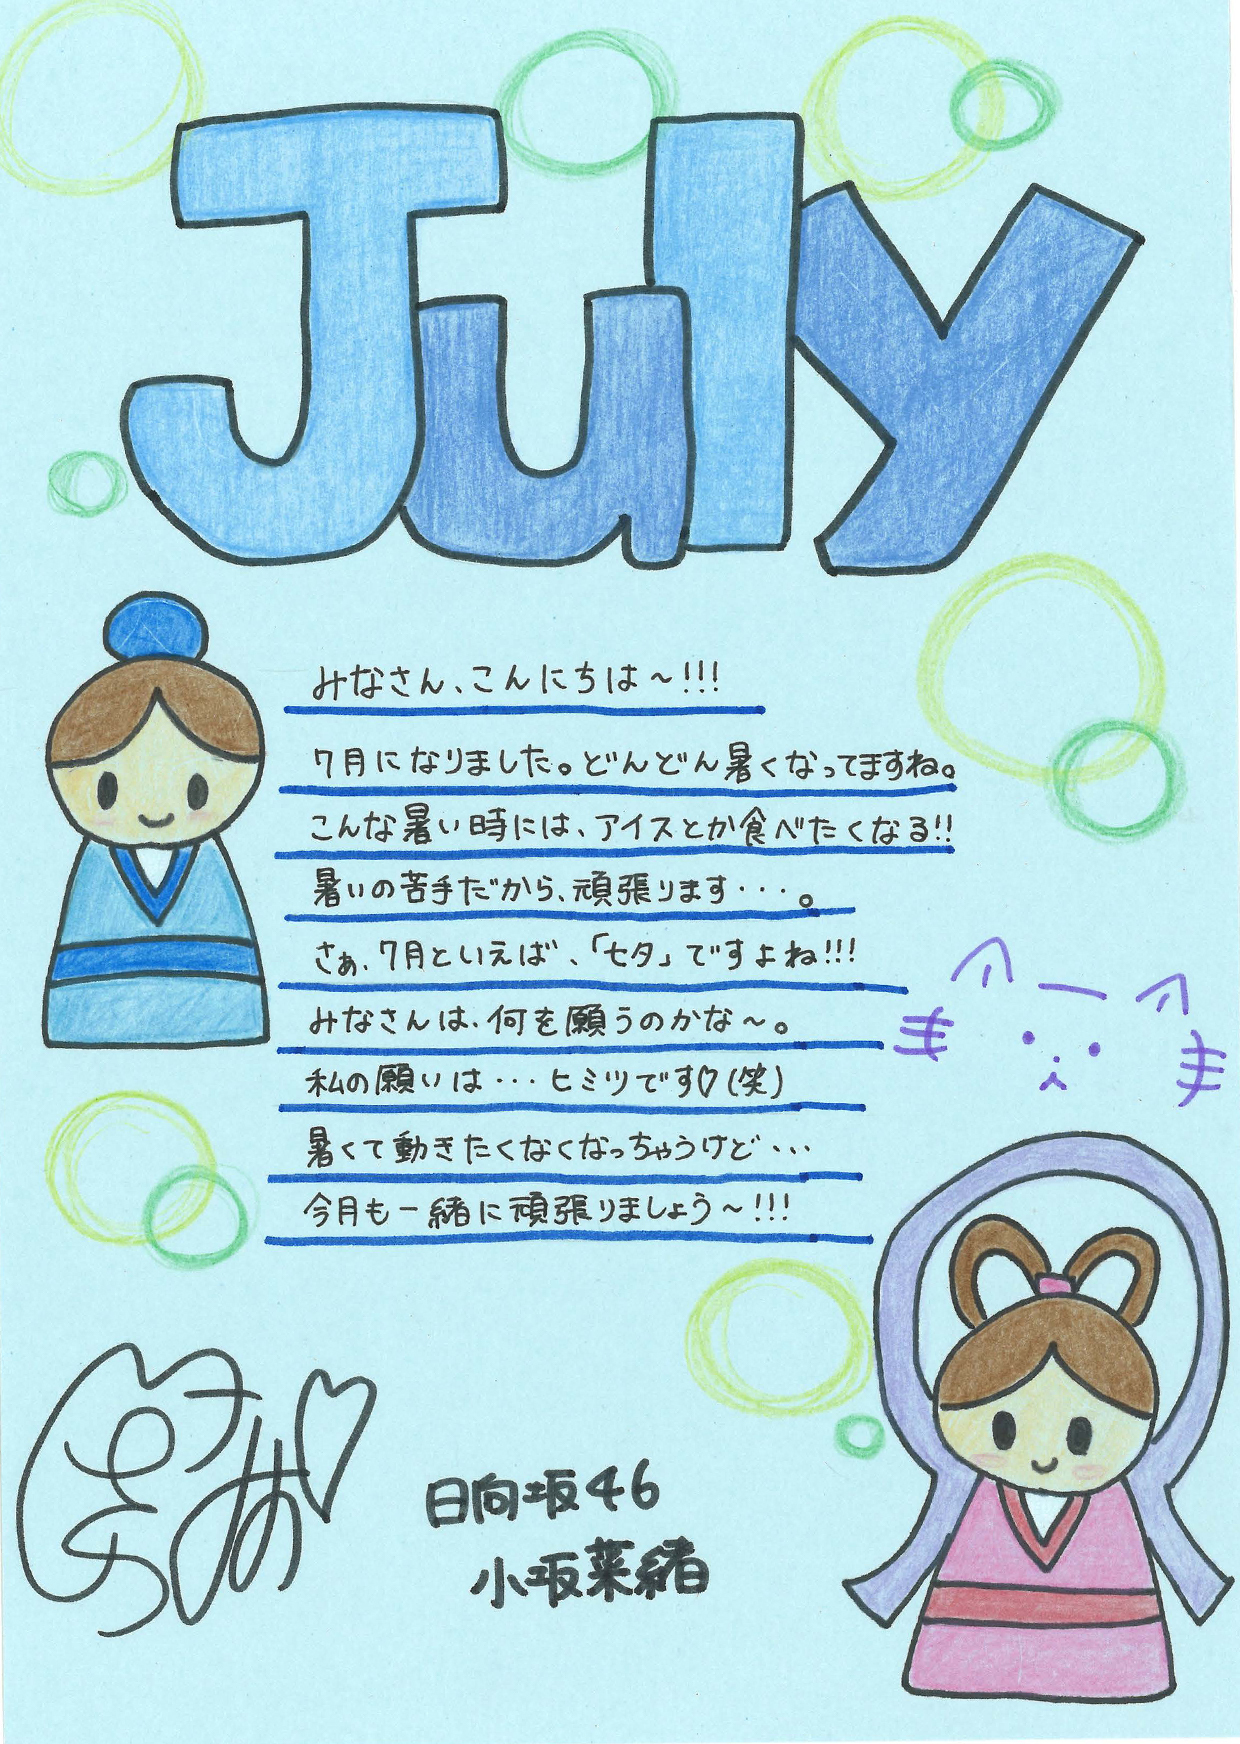 July
みなさん、こんにちは〜!!!
7月になりました。どんどん暑くなってますね。
こんな暑い時には、アイスとか食べたくなる!!
暑いの苦手だから、頑張ります・・・。
さぁ、7月といえば、「七夕」ですよね!!!
みなさんは、何を願うのかな〜。
私の願いは・・・ヒミツです♡(笑)
暑くて動きたくなくなっちゃうけど・・・
今月も一緒に頑張りましょう〜!!!
日向坂46
小坂菜緒